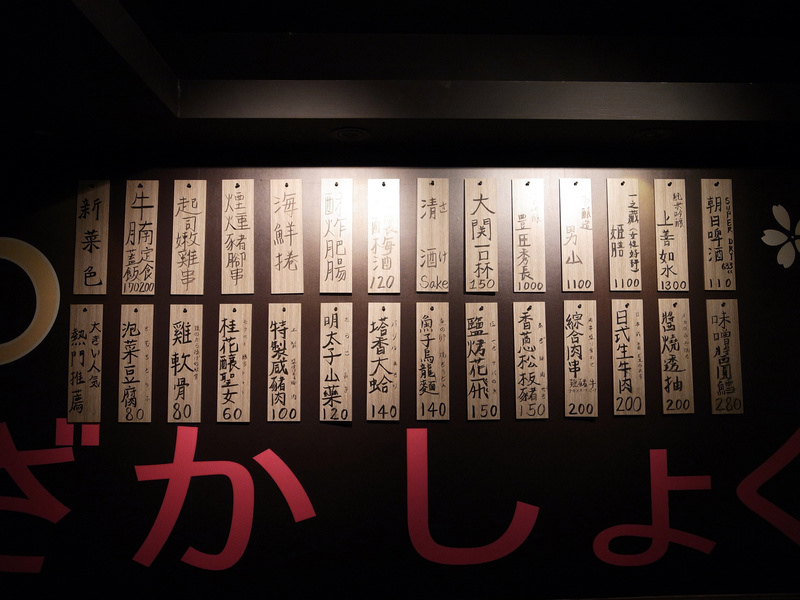 新菜色
牛腩定食200
蓋飯170
起司嫩雞串
煙燻豬腳串
海鮮捲
酥炸肥腸
梅酒120
清酒
さけ
Sake
大関一石杯150
豊臣秀長1000
男山1100
一之蔵
姫膳1100
純米吟醸
上善如水1300
SUPER DRY
朝日啤酒110
大きい人気
熱門推薦
泡菜豆腐80
雞軟骨80
桂花釀聖女60
特製咸豬肉100
明太子山藥120
塔香大蛤140
魚子烏龍麵140
鹽烤花飛150
香蔥松板豬150
綜合肉串200
日式生牛肉200
醬燒透抽200
味噌醬圓鱈280
ざかしょく